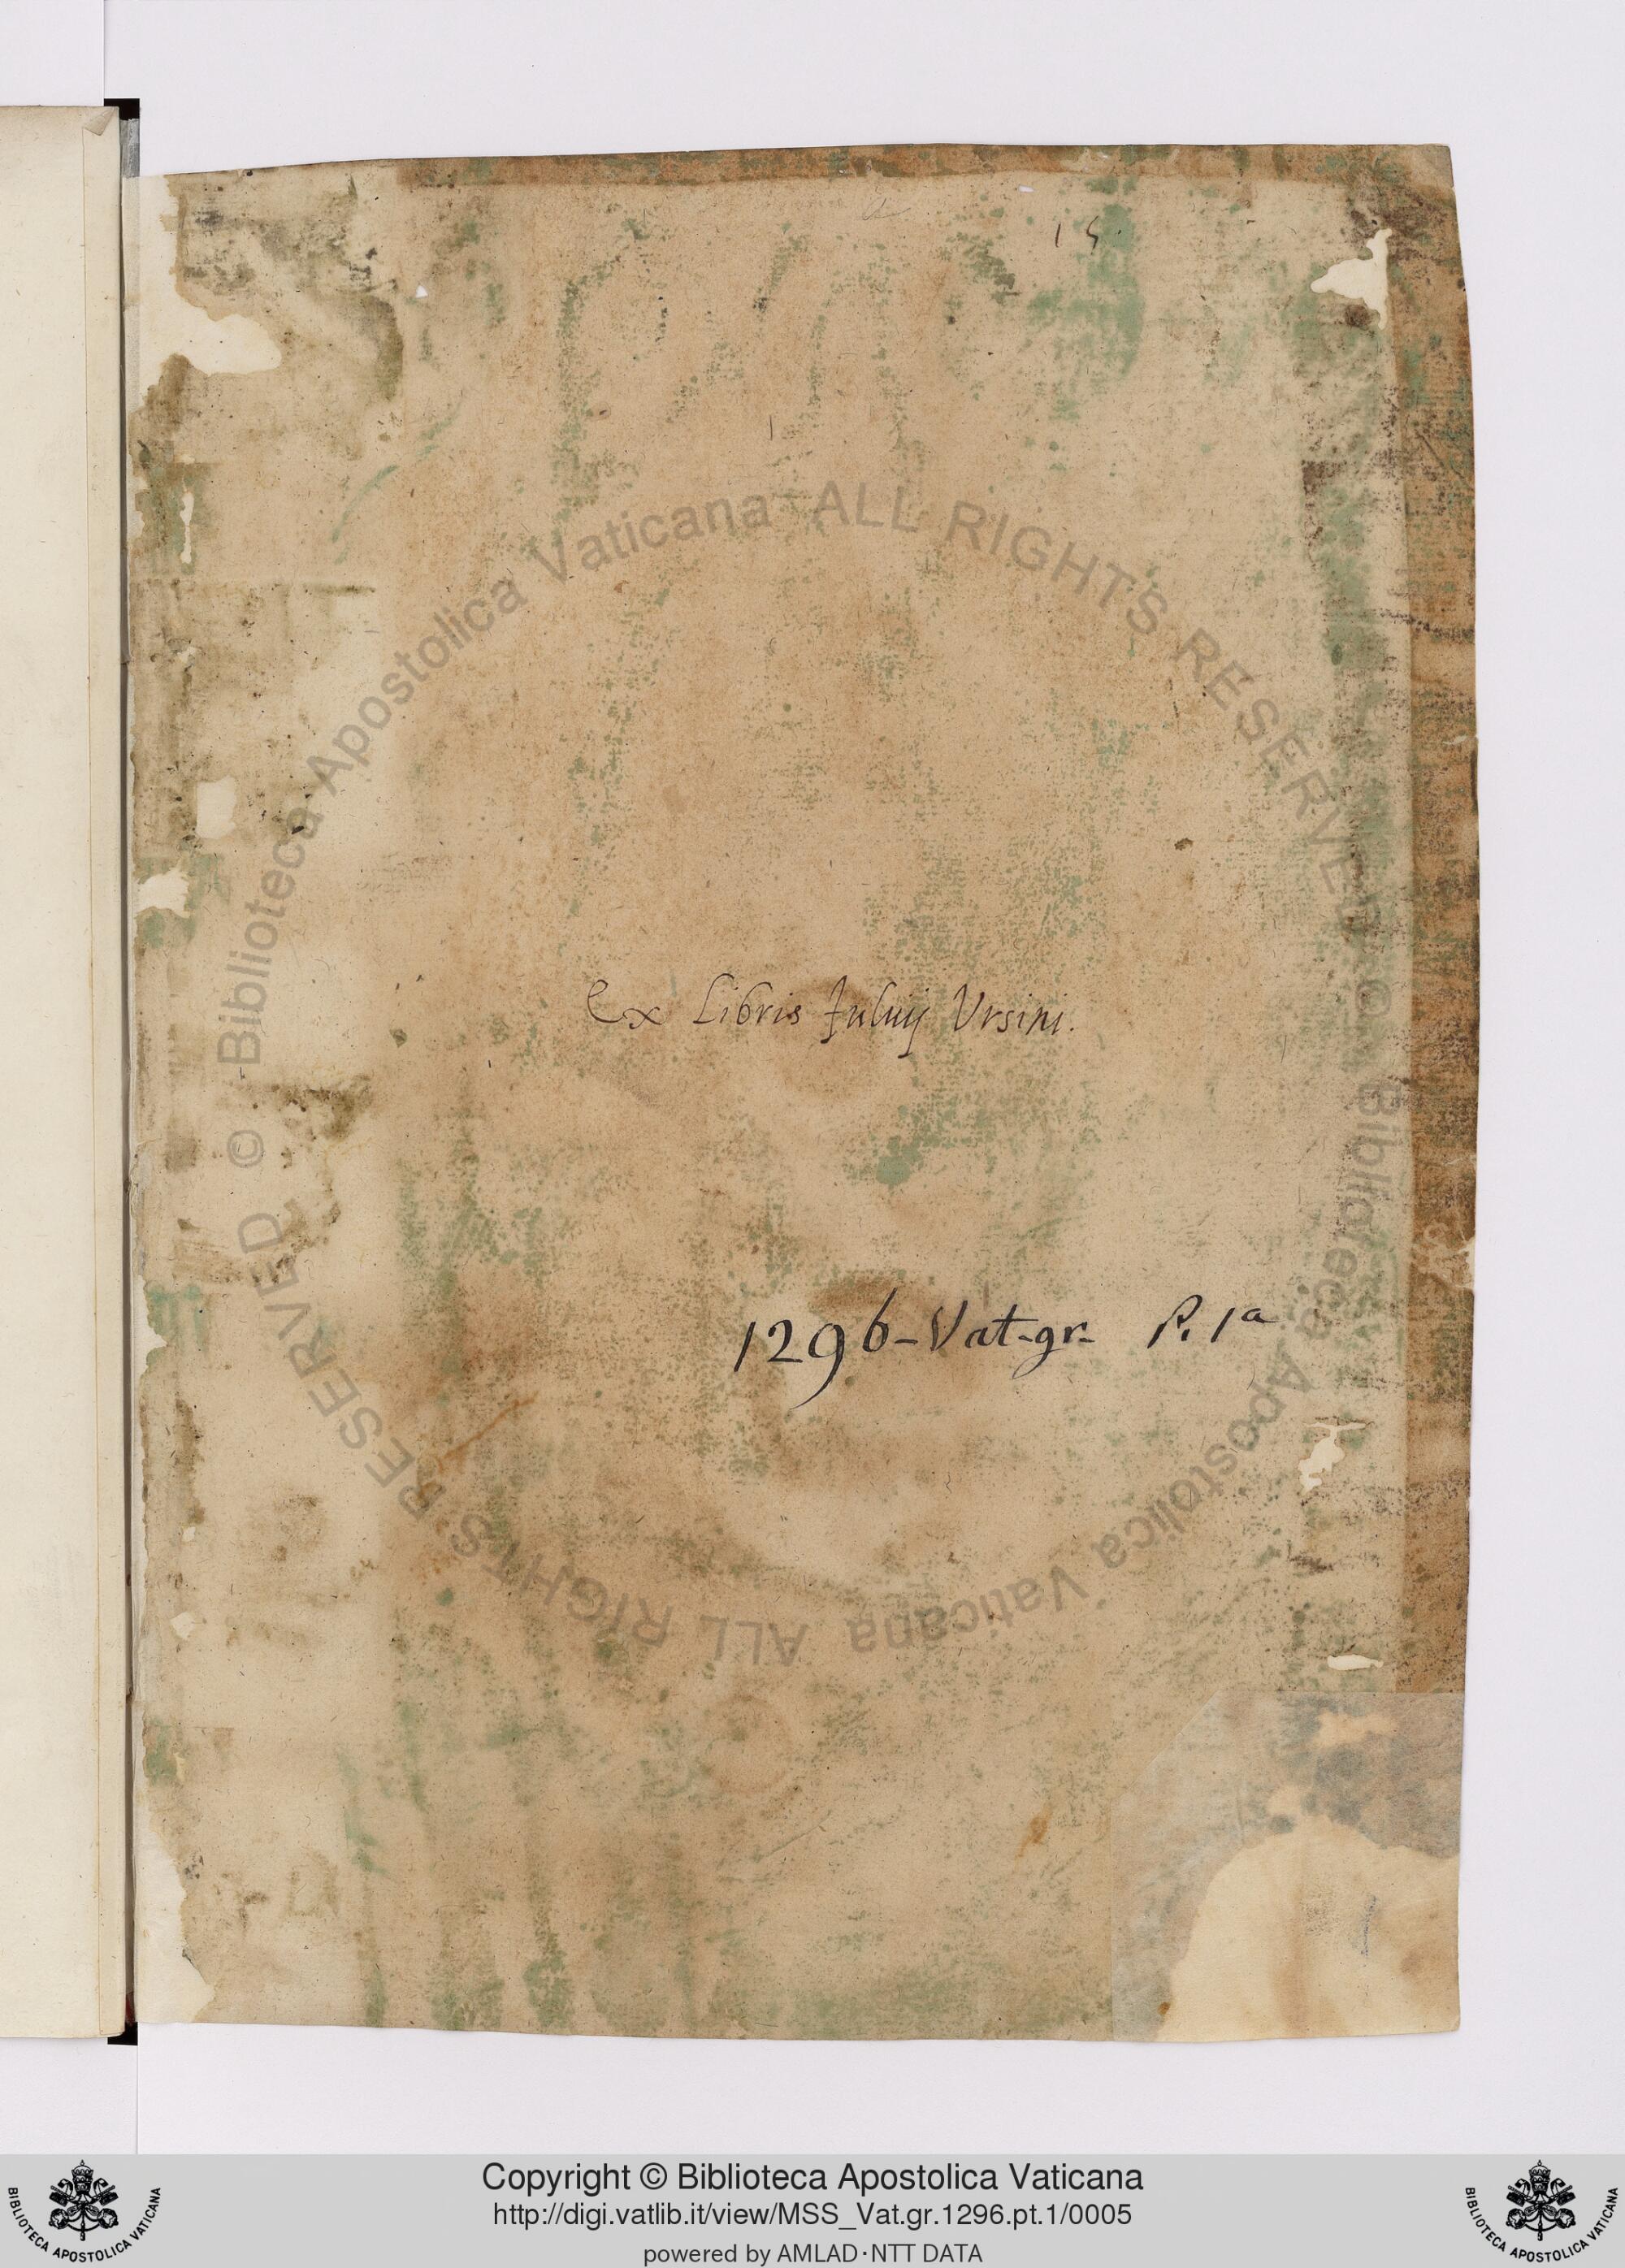 15.
Ex Libris Fuluij Vrsini.
1296-Vat-gr- P. 1a
© Biblioteca Apostolica Vaticana ALL RIGHTS RESERVED
© Biblioteca Apostolica Vaticana ALL RIGHTS RESERVED
BIBLIOTECA APOSTOLICA VATICANA
Copyright © Biblioteca Apostolica Vaticana
http://digi.vatlib.it/view/MSS_Vat.gr.1296.pt.1/0005
powered by AMLAD·NTT DATA
BIBLIOTECA APOSTOLICA VATICANA